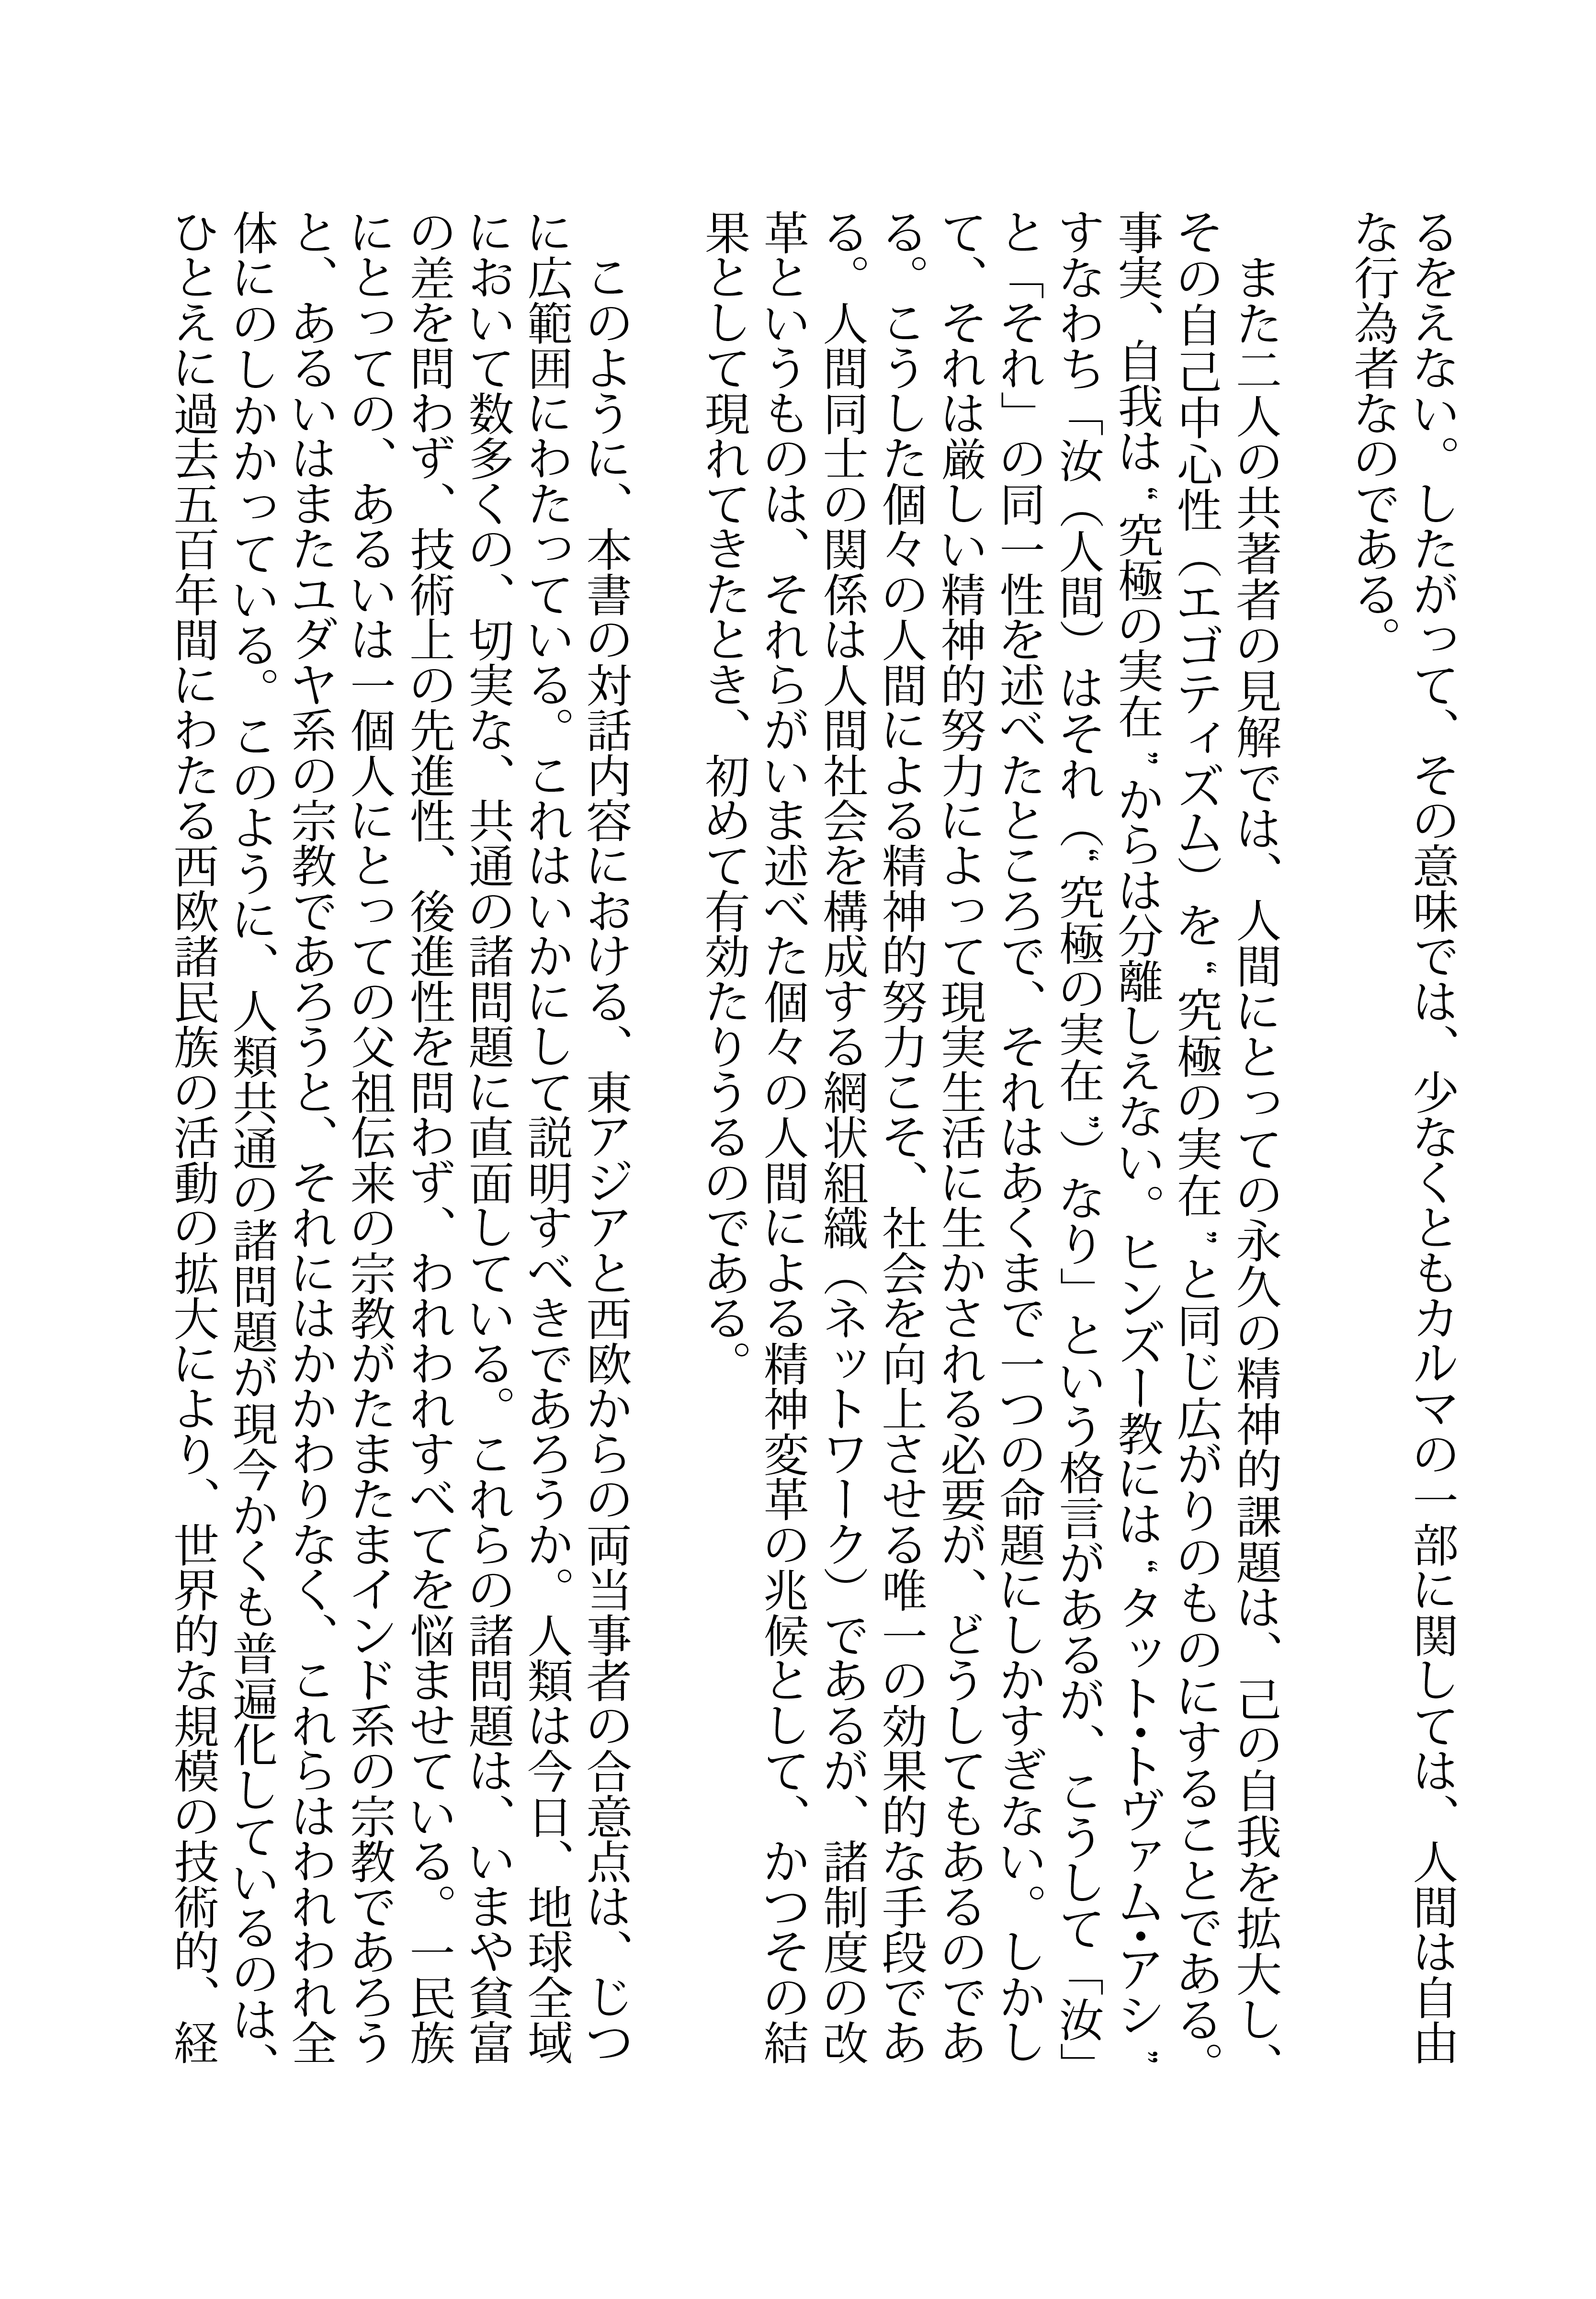 るをえない。したがって、その意味では、少なくともカルマの一部に関しては、人間は自由
な行為者なのである。
　また二人の共著者の見解では、人間にとっての永久の精神的課題は、己の自我を拡大し、
その自己中心性（エゴティズム）を〝究極の実在〟と同じ広がりのものにすることである。
事実、自我は〝究極の実在〟からは分離しえない。ヒンズー教には〝タット・トヴァム・アシ〟
すなわち「汝（人間）はそれ（〝究極の実在〟）なり」という格言があるが、こうして「汝」
と「それ」の同一性を述べたところで、それはあくまで一つの命題にしかすぎない。しかし
て、それは厳しい精神的努力によって現実生活に生かされる必要が、どうしてもあるのであ
る。こうした個々の人間による精神的努力こそ、社会を向上させる唯一の効果的な手段であ
る。人間同士の関係は人間社会を構成する網状組織（ネットワーク）であるが、諸制度の改
革というものは、それらがいま述べた個々の人間による精神変革の兆候として、かつその結
果として現れてきたとき、初めて有効たりうるのである。
　このように、本書の対話内容における、東アジアと西欧からの両当事者の合意点は、じつ
に広範囲にわたっている。これはいかにして説明すべきであろうか。人類は今日、地球全域
において数多くの、切実な、共通の諸問題に直面している。これらの諸問題は、いまや貧富
の差を問わず、技術上の先進性、後進性を問わず、われわれすべてを悩ませている。一民族
にとっての、あるいは一個人にとっての父祖伝来の宗教がたまたまインド系の宗教であろう
と、あるいはまたユダヤ系の宗教であろうと、それにはかかわりなく、これらはわれわれ全
体にのしかかっている。このように、人類共通の諸問題が現今かくも普遍化しているのは、
ひとえに過去五百年間にわたる西欧諸民族の活動の拡大により、世界的な規模の技術的、経